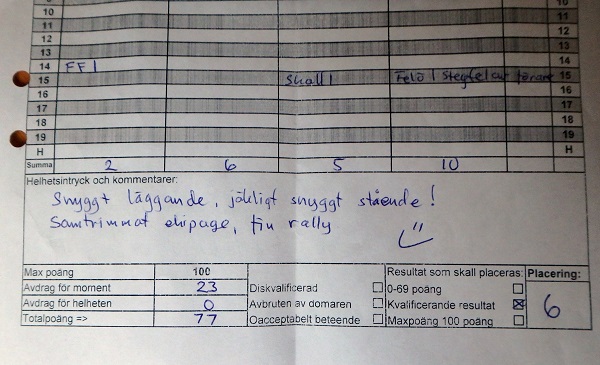 10 10
11 11
12 12
13 13
14 FF 1 14
15 Skall 1 Felö 1 Stegfel av förare 15
16 16
17 17
18 18
19 19
H H
Summa 2 6 5 10
Helhetsintryck och kommentarer:
Snyggt läggande, jäkligt snyggt stående!
Samtrimmat ekipage, fin rally
Max poäng 100 Resultat som skall placeras: Placering:
Avdrag för moment 23 Diskvalificerad 0-69 poäng
Avdrag för helheten 0 Avbruten av domaren Kvalificerande resultat 6
Totalpoäng => 77 Oacceptabelt beteende Maxpoäng 100 poäng